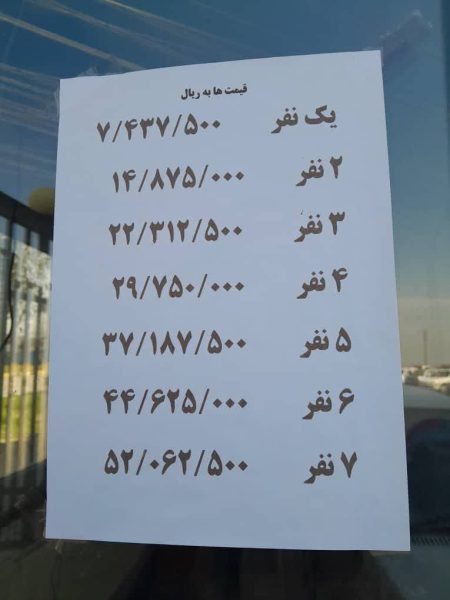 قیمت ها به ریال
یک نفر ۷/۴۳۷/۵۰۰
۲ نفر ۱۴/۸۷۵/۰۰۰
۳ نفر ۲۲/۳۱۲/۵۰۰
۴ نفر ۲۹/۷۵۰/۰۰۰
۵ نفر ۳۷/۱۸۷/۵۰۰
۶ نفر ۴۴/۶۲۵/۰۰۰
۷ نفر ۵۲/۰۶۲/۵۰۰